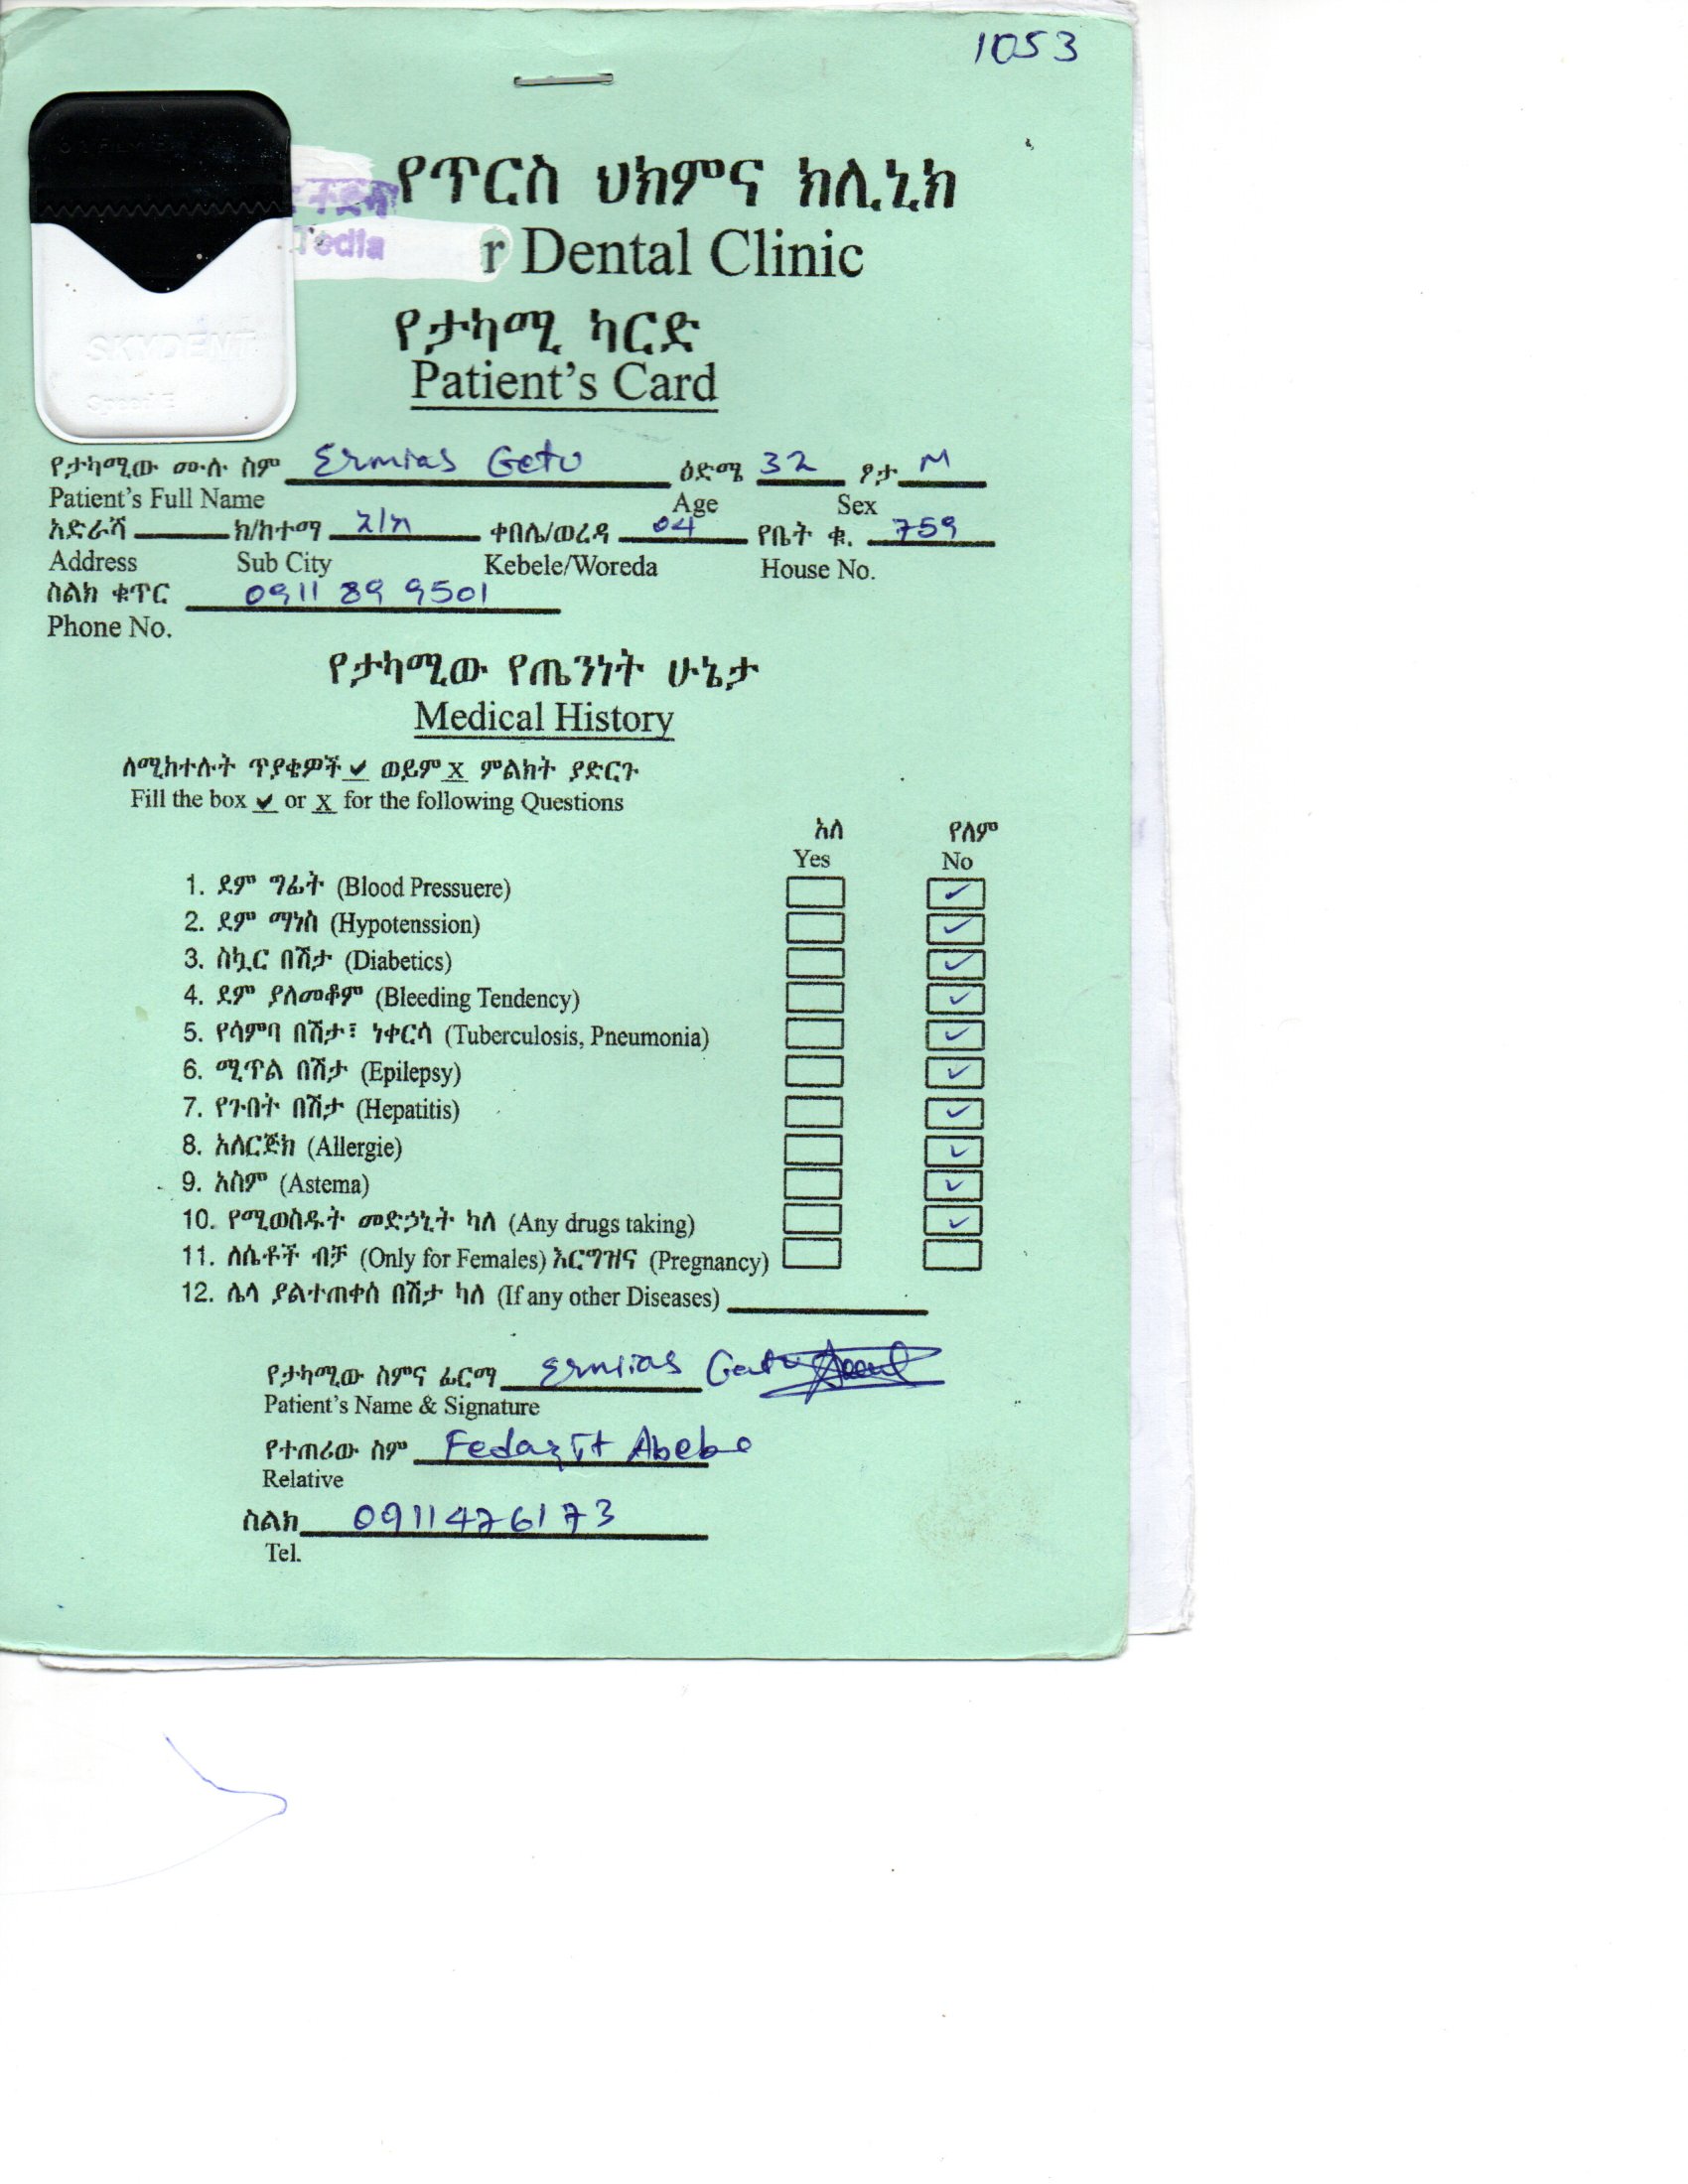 1053
የጥርስ ህክምና ክሊኒክ
Tedla r Dental Clinic
SKYDENT
Speed E
የታካሚ ካርድ
Patient's Card
የታካሚው ሙሉ ስም Ermias Getu ዕድሜ 32 ፆታ M
Patient's Full Name Age Sex
አድራሻ ክ/ከተማ ቀበሌ/ወረዳ 04 የቤት ቁ. 759
Address Sub City Kebele/Woreda House No.
ስልክ ቁጥር 0911 89 9501
Phone No.
የታካሚው የጤንነት ሁኔታ
Medical History
ለሚከተሉት ጥያቄዎች ✓ ወይም X ምልክት ያድርጉ
Fill the box ✓ or X for the following Questions
አለ የለም
Yes No
1. ደም ግፊት (Blood Pressuere) ✓
2. ደም ማነስ (Hypotenssion) ✓
3. ስኳር በሽታ (Diabetics) ✓
4. ደም ያለመቆም (Bleeding Tendency) ✓
5. የሳምባ በሽታ፣ ነቀርሳ (Tuberculosis, Pneumonia) ✓
6. ሚጥል በሽታ (Epilepsy) ✓
7. የጉበት በሽታ (Hepatitis) ✓
8. አለርጅክ (Allergie) ✓
9. አስም (Astema) ✓
10. የሚወስዱት መድኃኒት ካለ (Any drugs taking) ✓
11. ለሴቶች ብቻ (Only for Females) እርግዝና (Pregnancy)
12. ሌላ ያልተጠቀሰ በሽታ ካለ (If any other Diseases)
የታካሚው ስምና ፊርማ Ermias Getu
Patient's Name & Signature
የተጠሪው ስም Abebe
Relative
ስልክ 0911476173
Tel.